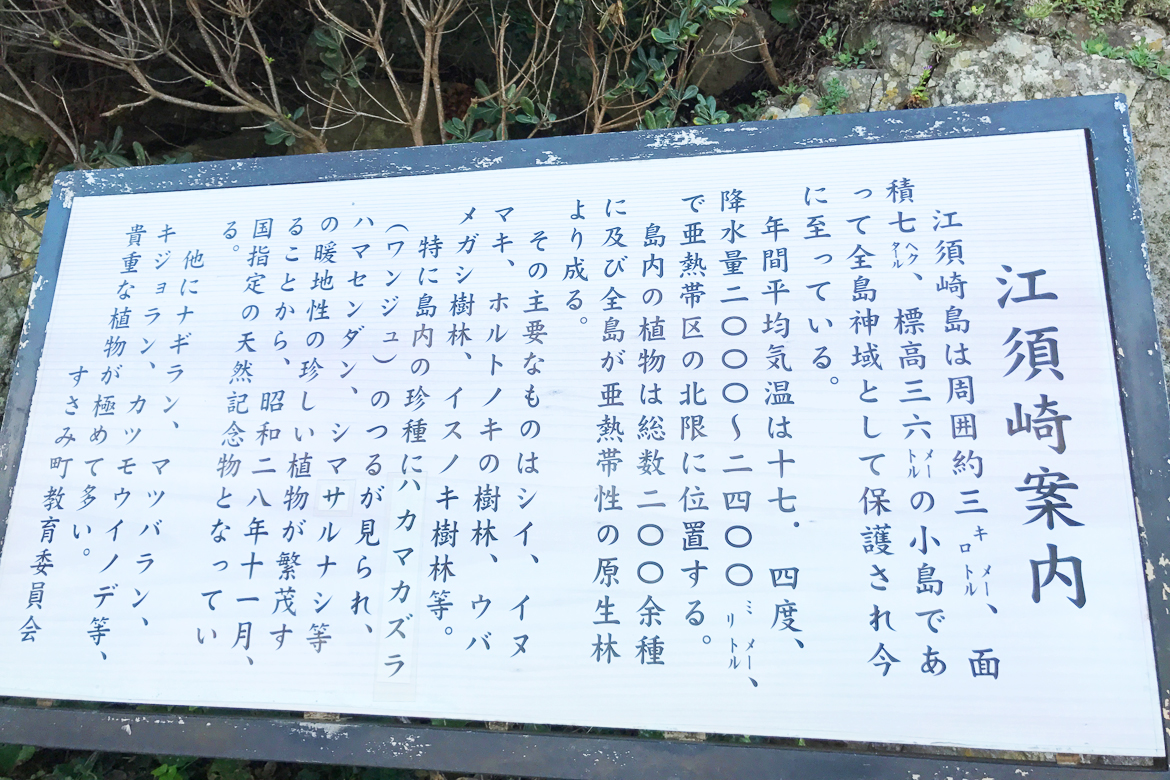 江須崎案内
江須崎島は周囲約三キロメートル、面
積七ヘクタール、標高三六メートルの小島であ
って全島神域として保護され今
に至っている。
年間平均気温は十七．四度、
降水量二〇〇〇〜二四〇〇ミリメートル、
で亜熱帯区の北限に位置する。
島内の植物は総数二〇〇余種
に及び全島が亜熱帯性の原生林
より成る。
その主要なものはシイ、イヌ
マキ、ホルトノキの樹林、ウバ
メガシ樹林、イスノキ樹林等。
特に島内の珍種にハカマカズラ
（ワンジュ）のつるが見られ、
ハマセンダン、シマサルナシ等
の暖地性の珍しい植物が繁茂す
ることから、昭和二八年十一月、
国指定の天然記念物となってい
る。
他にナギラン、マツバラン、
キジョラン、カツモウイノデ等、
貴重な植物が極めて多い。
すさみ町教育委員会